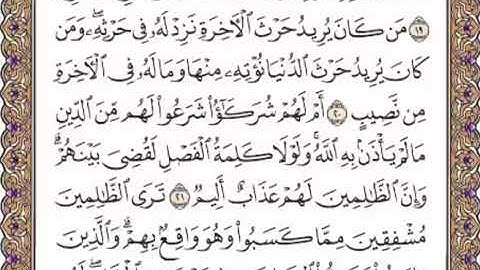 ١٩ مَن كَانَ يُرِيدُ حَرْثَ ٱلْأَخِرَةِ نَزِدْ لَهُۥ فِى حَرْثِهِۦ ۖ وَمَن
كَانَ يُرِيدُ حَرْثَ ٱلدُّنْيَا نُؤْتِهِۦ مِنْهَا وَمَا لَهُۥ فِى ٱلْأَخِرَةِ
مِن نَّصِيبٍ ٢٠ أَمْ لَهُمْ شُرَكَٰٓؤُا۟ شَرَعُوا۟ لَهُم مِّنَ ٱلدِّينِ
مَا لَمْ يَأْذَنۢ بِهِ ٱللَّهُ ۚ وَلَوْلَا كَلِمَةُ ٱلْفَصْلِ لَقُضِىَ بَيْنَهُمْ ۗ
وَإِنَّ ٱلظَّٰلِمِينَ لَهُمْ عَذَابٌ أَلِيمٌ ٢١ تَرَى ٱلظَّٰلِمِينَ
مُشْفِقِينَ مِمَّا كَسَبُوا۟ وَهُوَ وَاقِعٌۢ بِهِمْ ۗ وَٱلَّذِينَ